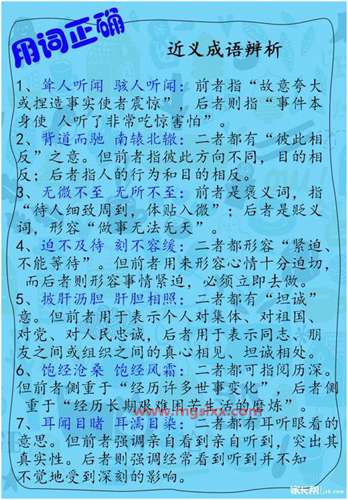 用词正确
近义成语辨析
1、耸人听闻 骇人听闻：前者指“故意夸大
或捏造事实使者震惊”，后者则指“事件本
身使 人听了非常吃惊害怕”。
2、背道而驰 南辕北辙：二者都有“彼此相
反”之意。但前者指彼此方向不同，目的相
反；后者指人的行为和目的相反。
3、无微不至 无所不至：前者是褒义词，指
“待人细致周到，体贴入微”；后者是贬义
词，形容“做事无法无天”。
4、迫不及待 刻不容缓：二者都形容“紧迫、
不能等待”。但前者用来形容心情十分迫切，
而后者则形容事情紧迫，必须立即去做。
5、披肝沥胆 肝胆相照：二者都有“坦诚”
意。但前者用于表示个人对集体、对祖国、
对党、对人民忠诚，后者用于表示同志、朋
友之间或组织之间的真心相见、坦诚相处。
6、饱经沧桑 饱经风霜：二者都可指阅历深。
但前者侧重于“经历许多世事变化”，后者侧
重于“经历长期艰难困苦生活的磨炼”。
www.mgslxx.com
7、耳闻目睹 耳濡目染：二者都有耳听眼看的
意思。但前者强调亲自看到亲自听到，突出其
真实性。后者则强调经常看到听到并不知
不觉地受到深刻的影响。
家长帮